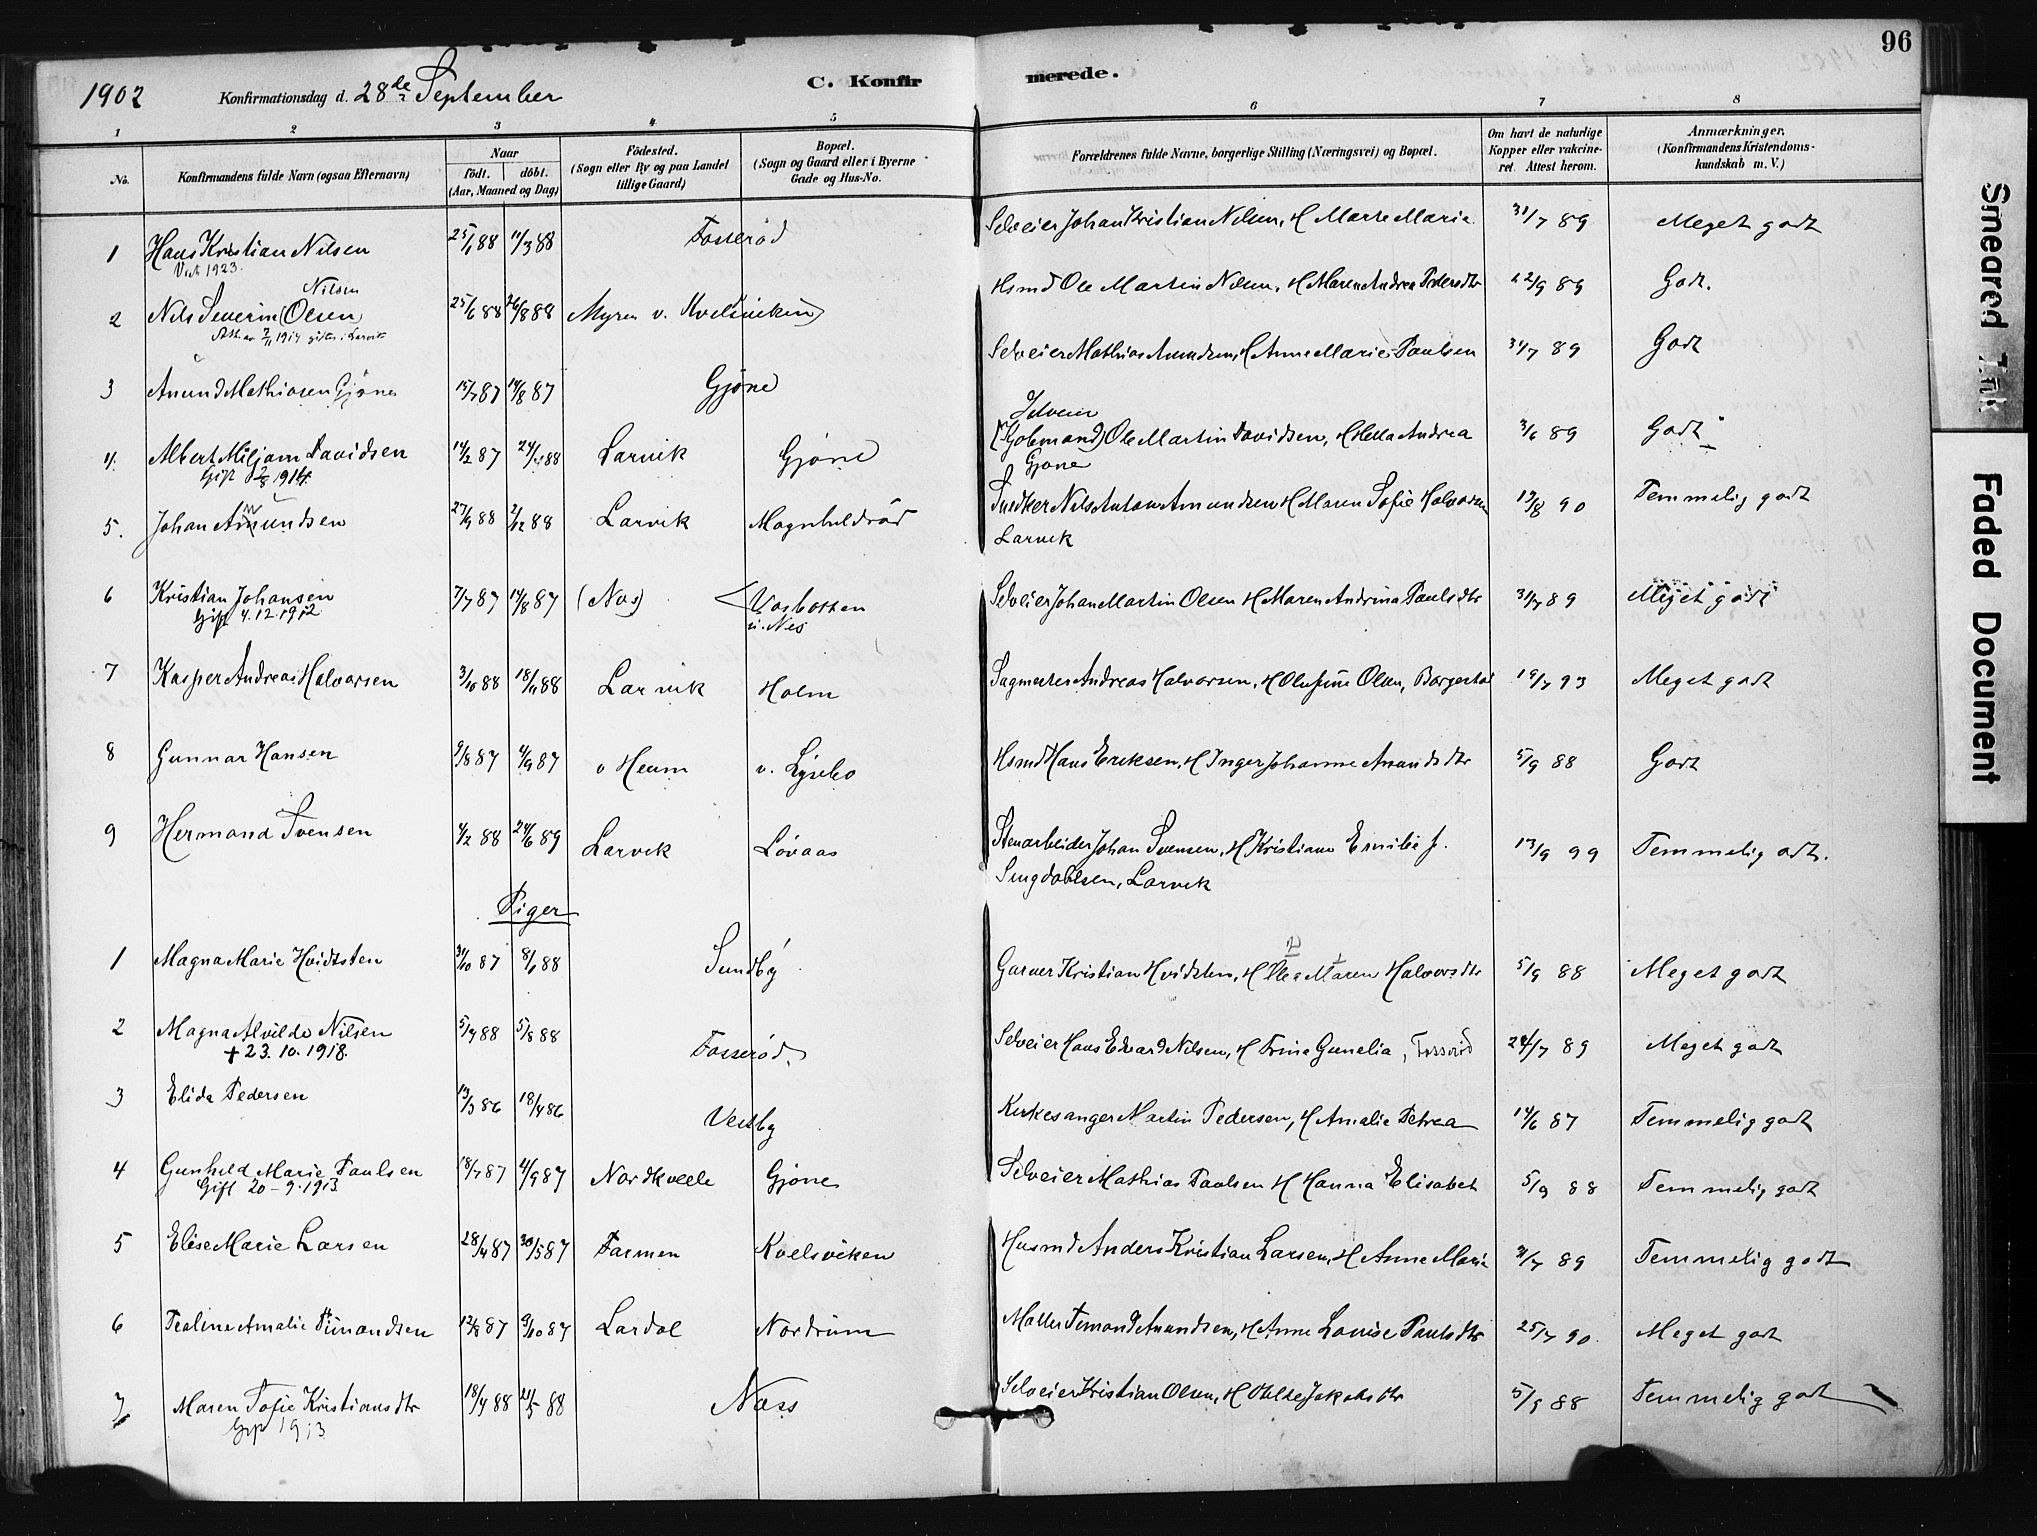 96
1902 Konfirmationsdag d. 28de September C. Konfirmerede.
1 2 3 4 5 6 7 8
No. Konfirmandens fulde Navn (ogsaa Efternavn) Naar født. døbt. (Aar, Maaned og Dag) Fødested. (Sogn eller By og paa Landet tillige Gaard) Bopæl. (Sogn og Gaard eller i Byerne Gade og Hus-No. Forældrenes fulde Navne, borgerlige Stilling (Næringsvei) og Bopæl. Om havt de naturlige Kopper eller vakcineret. Attest herom. Anmærkninger. (Konfirmandens Kristendomskundskab m. V.)
1 Hans Kristian Nilsen 25/1 88 11/3 88 Fosserød Selveier Johan Kristian Nilsen, H Marte Marie 31/7 89 Meget godt
1923.
Nilsen
2 Nils Severin (Olsen) 25/6 88 26/8 88 Myren v. Kvelsviken Hsmd Ole Martin Nilsen, H Maren Andrea Pedersdtr 22/9 89 Godt.
1914 gift i Larvik
3 Anund Mathiasen Gjøne 15/7 87 14/8 87 Gjøne Selveier Mathias Anundsen, H Anne Marie Paulsen 31/7 89 Godt
Selveier
4. Albert Miljam Davidsen 14/2 87 24/4 88 Larvik Gjøne (Gobmand) Ole Martin Davidsen, H Hella Andrea 3/6 89 Godt
Gift 2/8 1914. Gjøne
5. Johan Amundsen 27/9 88 2/12 88 Larvik Magnhildrød Snedker Nils Anton Amundsen H Maren Sofie Halvorsen 19/8 90 Temmelig godt
Larvik
6 Kristian Johansen 7/7 87 14/8 87 (Nes) Vasbotten u. Nes Selveier Johan Martin Olsen H Maren Andrina Paulsdtr 31/7 89 Meget godt
Gift 4.12.1912
7 Kasper Andreas Halvorsen 3/10 88 18/11 88 Larvik Holm Sagmester Andreas Halvorsen, H Olufine Olsen, 19/7 93 Meget godt
8 Gunnar Hansen 9/8 87 4/9 87 v Heum v. Lysebo Hsmd Hans Eriksen, H Inger Johanne Anundsdtr 5/9 88 Godt
9 Hermand Svensen 4/2 88 24/6 89 Larvik Løvaas Stenarbeider Johan Svensen, H Kristiane Emilie f. 13/9 99 Temmelig godt.
Larvik
Piger
1 Magna Marie Hvidsten 31/10 87 8/1 88 Sundby Garver Kristian Hvidsten, H Maren Halvorsdtr 5/9 88 Meget godt
2 Magna Alvilde Nilsen 5/7 88 5/8 88 Fosserød. Selveier Hans Edvard Nilsen, H Trine Gunelia, Fosserød 24/7 89 Meget godt
+ 23.10.1918.
3 Elida Pedersen 13/3 86 18/4 86 Vestby Kirkesanger Martin Pedersen, H Amalie Petrea 14/6 87 Temmelig godt
4 Gunhild Marie Paulsen 18/7 87 4/9 87 Nordkvelle Gjøne Selveier Mathias Paulsen H Hanna Elisabet 5/9 88 Temmelig godt
Gift 20-9-1913
5 Elise Marie Larsen 28/4 87 30/5 87 Farmen Kvelsviken Husmd Anders Kristian Larsen, H Anne Marie 31/7 89 Temmelig godt
6 Tealine Amalie Timandsen 12/8 87 9/10 87 Lardal Nordrum Møller Temand Anundsen, H Anne Louise Paulsdtr 25/7 90. Meget godt
7 Maren Sofie Kristiansdtr 18/4 88 21/5 88 Næss Selveier Kristian Olsen, H Helle Jakobsdtr 5/9 88 Temmelig godt
Gift 1913
Smeared Ink
Faded Document